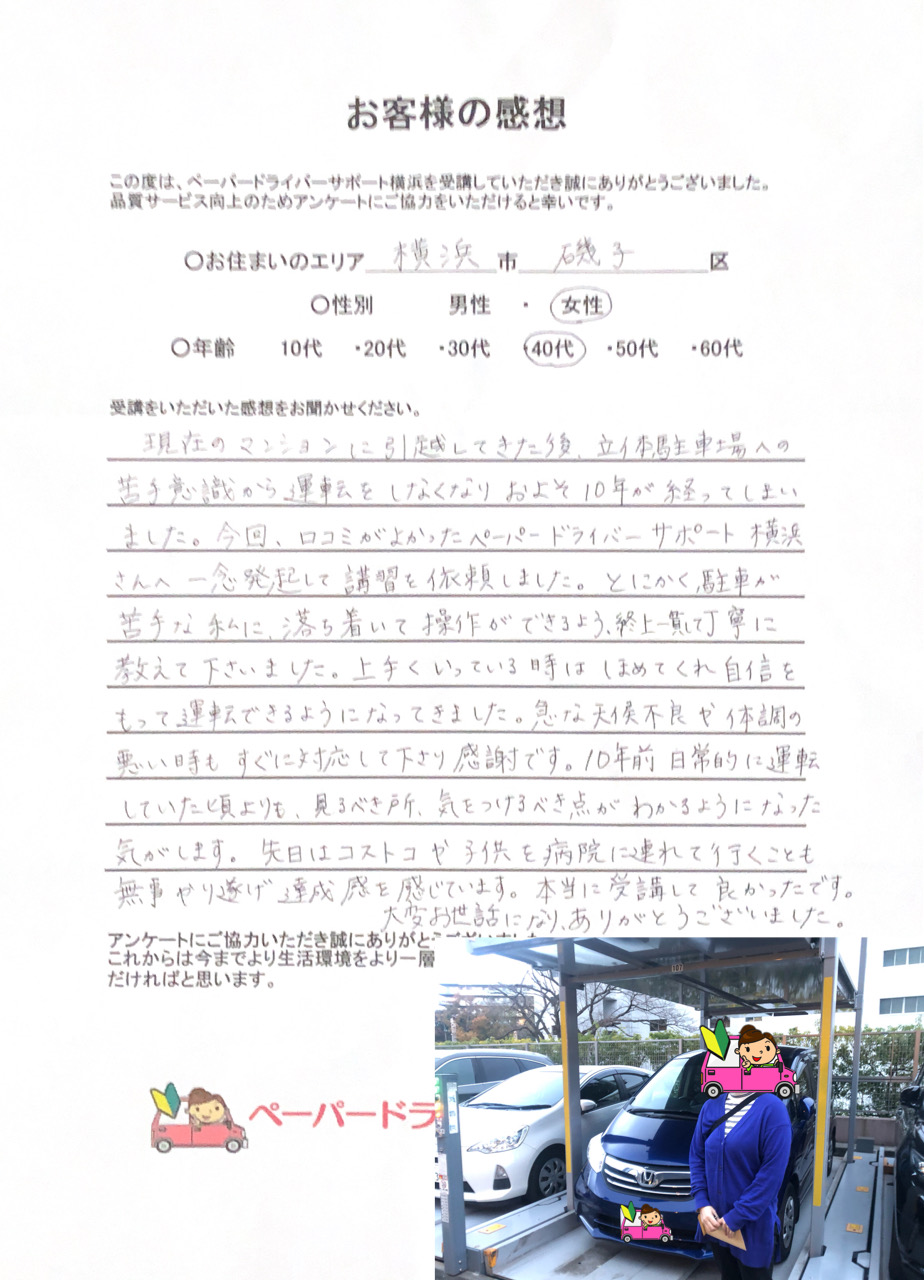 お客様の感想
この度は、ペーパードライバーサポート横浜を受講していただき誠にありがとうございました。
品質サービス向上のためアンケートにご協力をいただけると幸いです。
○お住まいのエリア 横浜 市 磯子 区
○性別 男性 ・ 女性
○年齢 10代 ・20代 ・30代 ・40代 ・50代 ・60代
受講をいただいた感想をお聞かせください。
現在のマンションに引越してきた後、立体駐車場への
苦手意識から運転をしなくなりおよそ10年が経ってしまい
ました。今回、口コミがよかったペーパードライバーサポート横浜
さんへ一念発起して講習を依頼しました。とにかく駐車が
苦手な私に、落ち着いて操作ができるよう、終止一貫して丁寧に
教えて下さいました。上手くいっている時はほめてくれ自信を
もって運転できるようになってきました。急な天候不良や体調の
悪い時もすぐに対応して下さり感謝です。10年前日常的に運転
していた頃よりも、見るべき所、気をつけるべき点がわかるようになった
気がします。先日はコストコや子供を病院に連れて行くことも
無事やり遂げ達成感を感じています。本当に受講して良かったです。
大変お世話になり、ありがとうございました。
アンケートにご協力いただき誠にありがとう
これからは今までより生活環境をより一層
だければと思います。
ペーパードラ
107